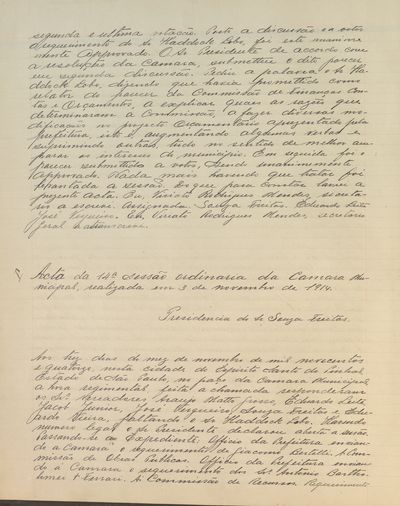 segunda e ultima votação. Posto a discussão e a votos
o requerimento do Sr. Haddock Lobo, foi este unanime
mente approvado. O Sr. Presidente de accordo com
a resolução da Camara, submetteu o dito parecer
em segunda discussão. Pediu a palavra o Sr. Ha
ddock Lobo, dizendo que havia promettido como
relator do parecer da Commissão de Finanças Con
tas e Orçamentos, a explicar quaes as razões que
determinaram a Commissão, a fazer diversas mo
dificações no projecto Orçamentario apresentado pela
Prefeitura, isto é, augmentando algumas verbas e
supprimindo outras, tudo no sentido de melhor am
parar os interesses do municipio. Em seguida foi o
parecer submettido a votos, sendo unanimemente
approvado. Nada mais havendo que tratar foi
levantada a sessão. Do que para constar lavrei a
presente acta. Eu, Rodrigues Mendes, secreta
rio a escrevi. Assignado. Souza Freitas. Eduardo Leite
José Vergueiro. Eu, Rodrigues Mendes, secretario
Geral
Acta da 14ª sessão ordinaria da Camara Mu
nicipal, realizada em 3 de novembro de 1914.
Presidencia do Sr. Souza Freitas.
Aos tres dias do mez de novembro de mil novecentos
e quatorze, nesta cidade de Espirito Santo do Pinhal,
Estado de São Paulo, no paço da Camara Municipal
á hora regimental feita a chamada responderam
os Srs. Vereadores Araujo Matto Grosso, Eduardo Leite
Jacob Junior, José Vergueiro, Souza Freitas e Edu
ardo Vieira, faltando o Sr. Haddock Lobo. Havendo
numero legal o Sr. Presidente declarou aberta a sessão.
Passando-se ao Expediente: Officio da Prefeitura envian
do á Camara o requerimento de Giacomo Bertelli. A Com
missão de Obras Publicas. Officio da Prefeitura envian
do á Camara o requerimento dos Srs. Antonio Bartho
lomei & Ferrari. A Commissão de Recursos Requerimento